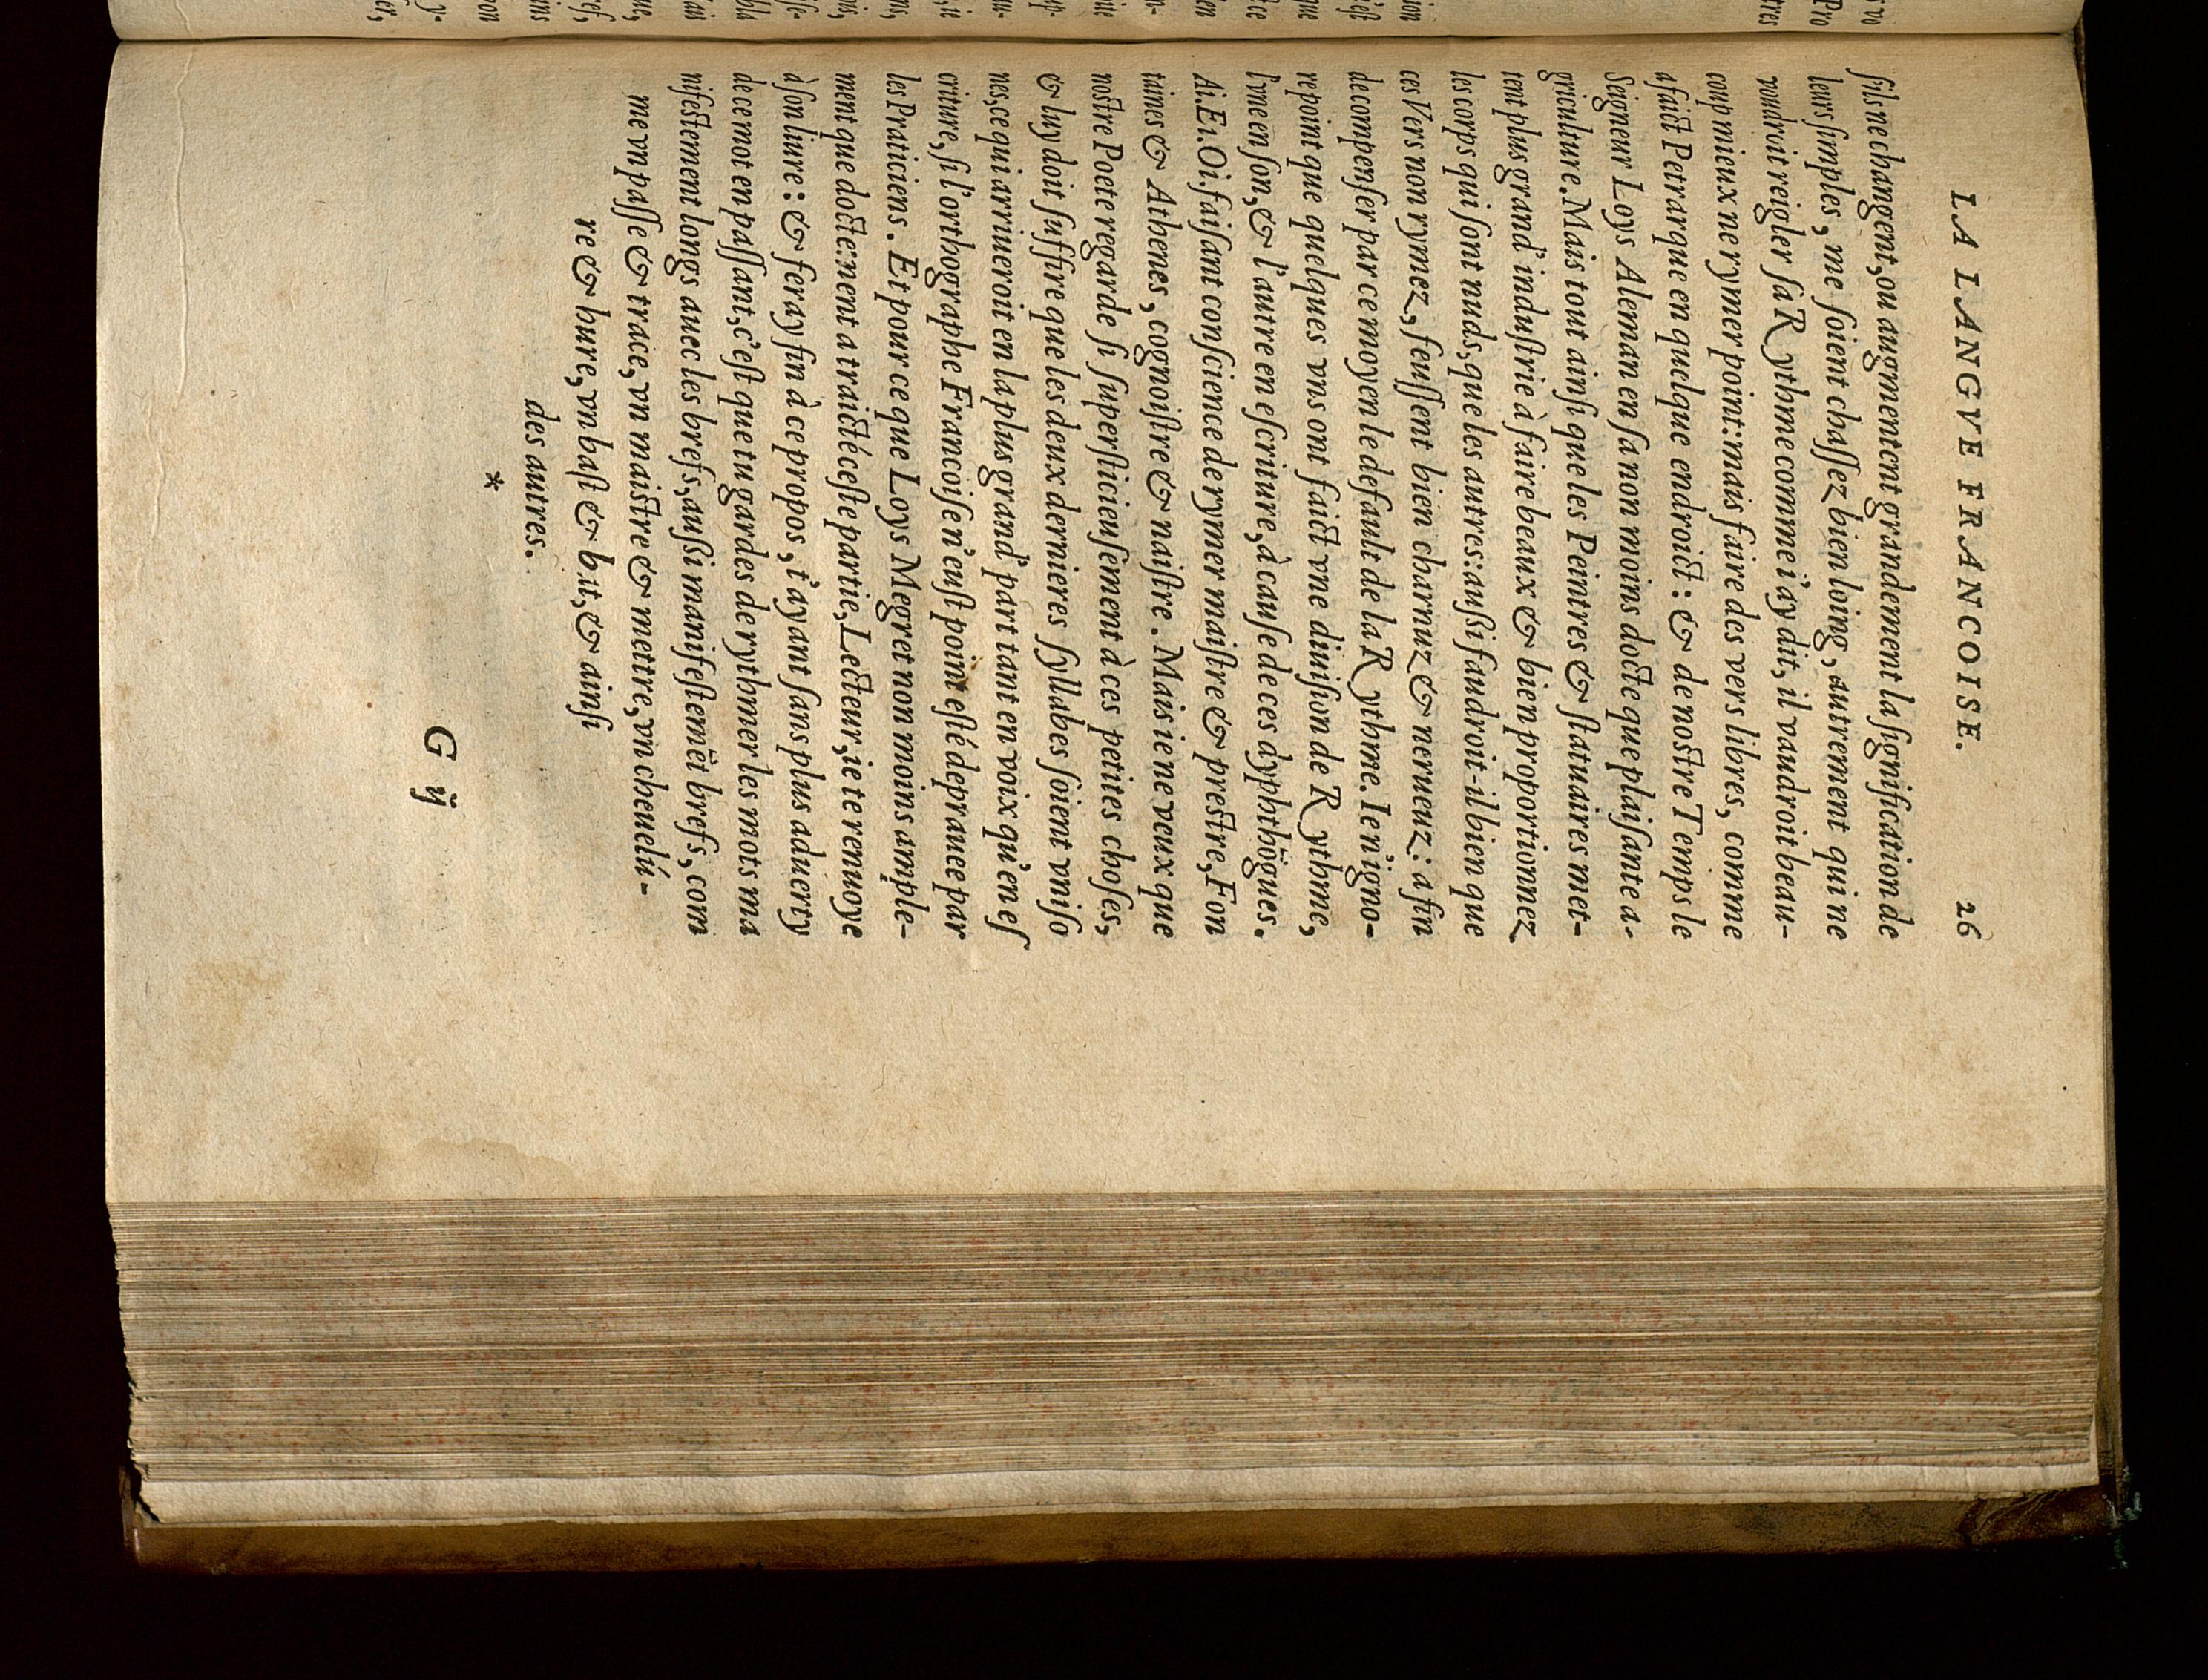 LA LANGVE FRANCOISE. 26
ſilsne changent, ou augmentent grandement la ſignification de
leurs ſimples, me ſoient chaſſez bien loing, autrement qui ne
voudroit reigler ſa Rythme comme i'ay dit, il vaudroit beau-
coup mieux ne rymer point: mais faire des vers libres, comme
a faict Petrarque en quelque endroict: & de noſtre Temps le
Seigneur Loys Aleman en ſa non moins docte que plaiſante a-
griculture. Mais tout ainſi que les Peintres & ſtatuaires met-
tent plus grand' induſtrie à faire beaux & bien proportionnez
les corps qui ſont nuds, que les autres: auſsi faudroit-il bien que
ces Vers non rymez, feuſſent bien charnuz & nerueuz: a fin
de compenſer par ce moyen le default de la Rythme. Ie n'igno-
re point que quelques vns ont faict vne diuiſion de Rythme,
l'vne en ſon, & l'autre en eſcriture, à cauſe de ces dyphthōgues.
Ai. Ei. Oi. faiſant conſcience de rymer maiſtre & preſtre, Fon
taines & Athenes, cognoiſtre & naiſtre. Mais ie ne veux que
noſtre Poete regarde ſi ſuperſticieuſement à ces petites choſes,
& luy doit ſuffire que les deux dernieres ſyllabes ſoient vniſo
nes, ce qui arriueroit en la plus grand' part tant en voix qu'en eſ
criture, ſi l'orthographe Francoiſe n'euſt point eſté deprauee par
les Praticiens. Et pource que Loys Megret non moins ample-
ment que doctement a traicté ceſte partie, Lecteur, ie te renuoye
à ſon liure: & feray fin à ce propos, t'ayant ſans plus aduerty
de ce mot en paſſant, c'eſt que tu gardes de rythmer les mots ma
nifeſtement longs auec les brefs, auſsi manifeſtemēt brefs, com
me vn paſſe & trace, vn maiſtre & mettre, vn cheuelú-
re & hure, vn baſt & bat, & ainſi
des autres.
*
G ij